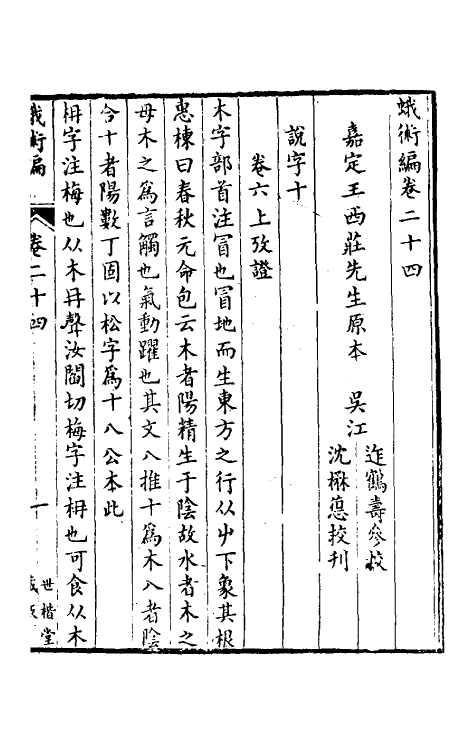 蛾術編卷二十四
嘉定王西莊先生原本　吳江
迮鶴壽參校
沈楙悳挍刊
說字十
卷六上攷證
木字部首注冒也冒地而生東方之行从屮下象其根
惠棟曰春秋元命包云木者陽精生于陰故水者木之
母木之爲言觸也氣動躍也其文八推十爲木八者陰
合十者陽數丁固以松字爲十八公本此
枏字注梅也从木冄聲汝閻切梅字注枏也可食从木
蛾術編
卷二十四
一
世楷堂
藏板